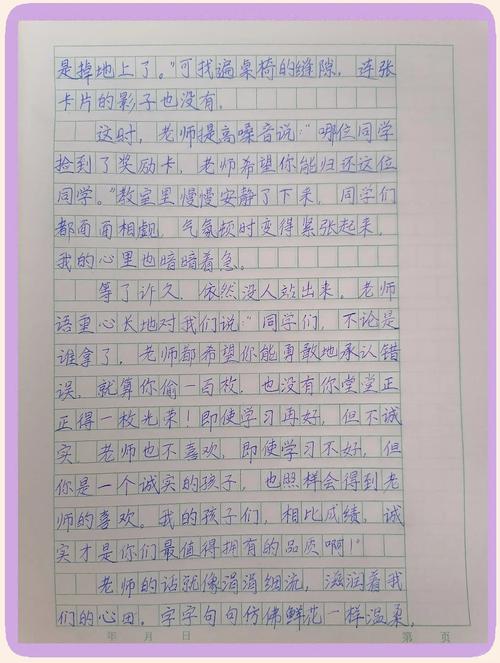 是掉地上了。"可找遍桌椅的缝隙，连张
卡片的影子也没有。
这时，老师提高嗓音说："哪位同学
捡到了奖励卡，老师希望你能归还这位
同学。"教室里慢慢安静了下来，同学们
都面面相觑，气氛顿时变得紧张起来，
我的心里也暗暗着急。
等了许久，依然没人站出来。老师
语重心长地对我们说："同学们，不论是
谁拿了，老师都希望你能勇敢地承认错
误，就算你偷一百枚，也没有你堂堂正
正得一枚光荣！即使学习再好，但不诚
实，老师也不喜欢，即使学习不好，但
你是一个诚实的孩子，也照样会得到老
师的喜欢。我的孩子们，相比成绩，诚
实才是你们最值得拥有的品质啊！"
老师的话就像涓涓细流，滋润着我
们的心田。字字句句仿佛鲜花一样温柔，
年 月 日 第 页